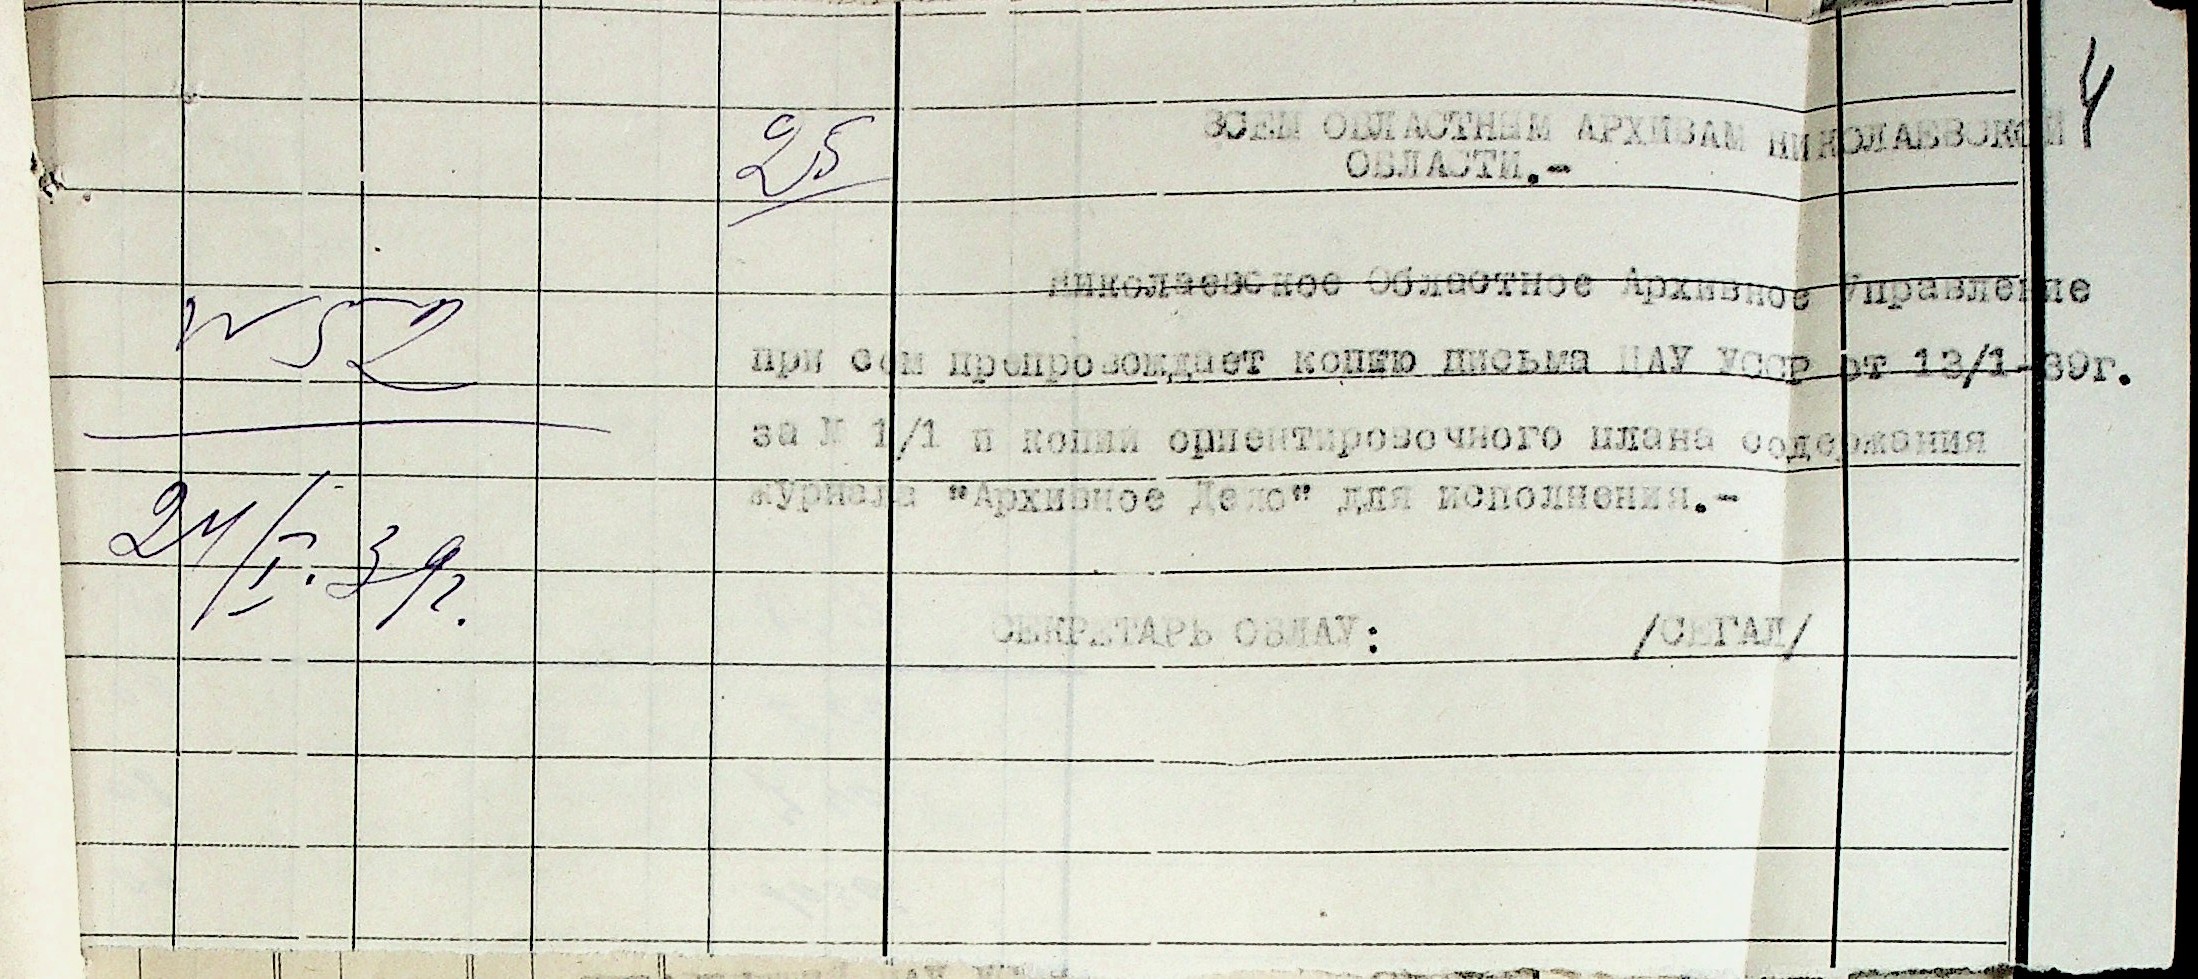 4
25
ВСЕМ ОБЛАСТНЫМ АРХИВАМ НИКОЛАЕВСКОЙ
ОБЛАСТИ.-
Николаевское Областное Архивное Управление
при сем препровождает копию письма ЦАУ УССР от 13/1-39г.
за № 1/1 и копий ориентировочного плана содержания
журнала "Архивное Дело" для исполнения.-
N 52
24/I.39г.
СЕКРЕТАРЬ ОБЛАУ: /СЕГАЛ/